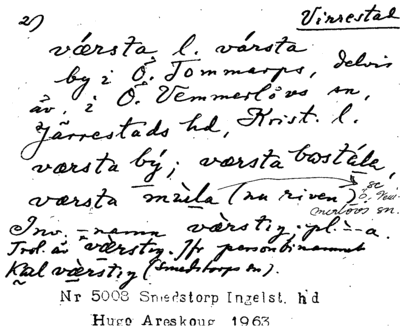 2)
Virrestad
værsta l. vársta
by i Ö. Tommarps, delvis
äv. i Ö. Vemmerlövs sn,
Järrestads hd, Krist. l.
værsta bý; værsta bostála,
værsta mœ̀la (nu riven) se
Ö. Vem-
merlövs sn.
Inv.-namn værstig. pl. -a.
Trol. äv værstig. Jfr personbinamnet
Kal værstig (Smedstorps sn).
Nr 5008 Smedstorp Ingelst. hd
Hugo Areskoug 1963